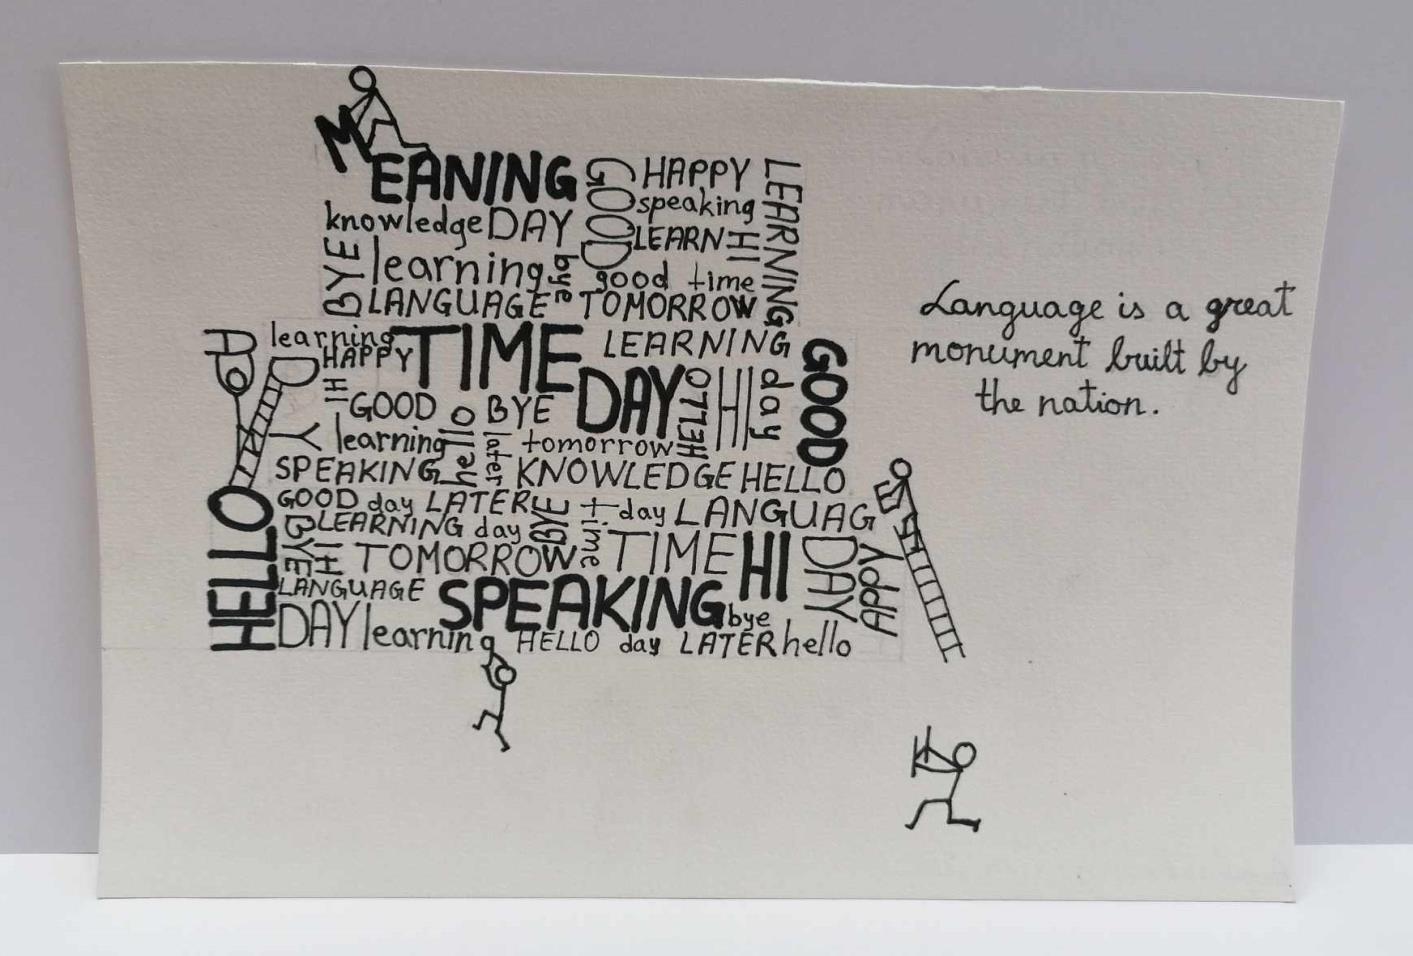 MEANING
GOOD
HAPPY
LEARNING
speaking
knowledge DAY
LEARN HI
BYE
learning
bye
good time
LANGUAGE
TOMORROW
learning
TIME
LEARNING
HAPPY
A DAY
GOOD
HI
DAY
HELLO
HI
day
GOOD
hello
BYE
learning
later
tomorrow
SPEAKING
KNOWLEDGE HELLO
HELLO
GOOD day LATER
BYE
time
day LANGUAGE
BYE
LEARNING day
HI
TOMORROW
TIME
HI
DAY
HAPPY
LANGUAGE
SPEAKING
bye
DAY learning HELLO day LATER hello
Language is a great
monument built by
the nation.